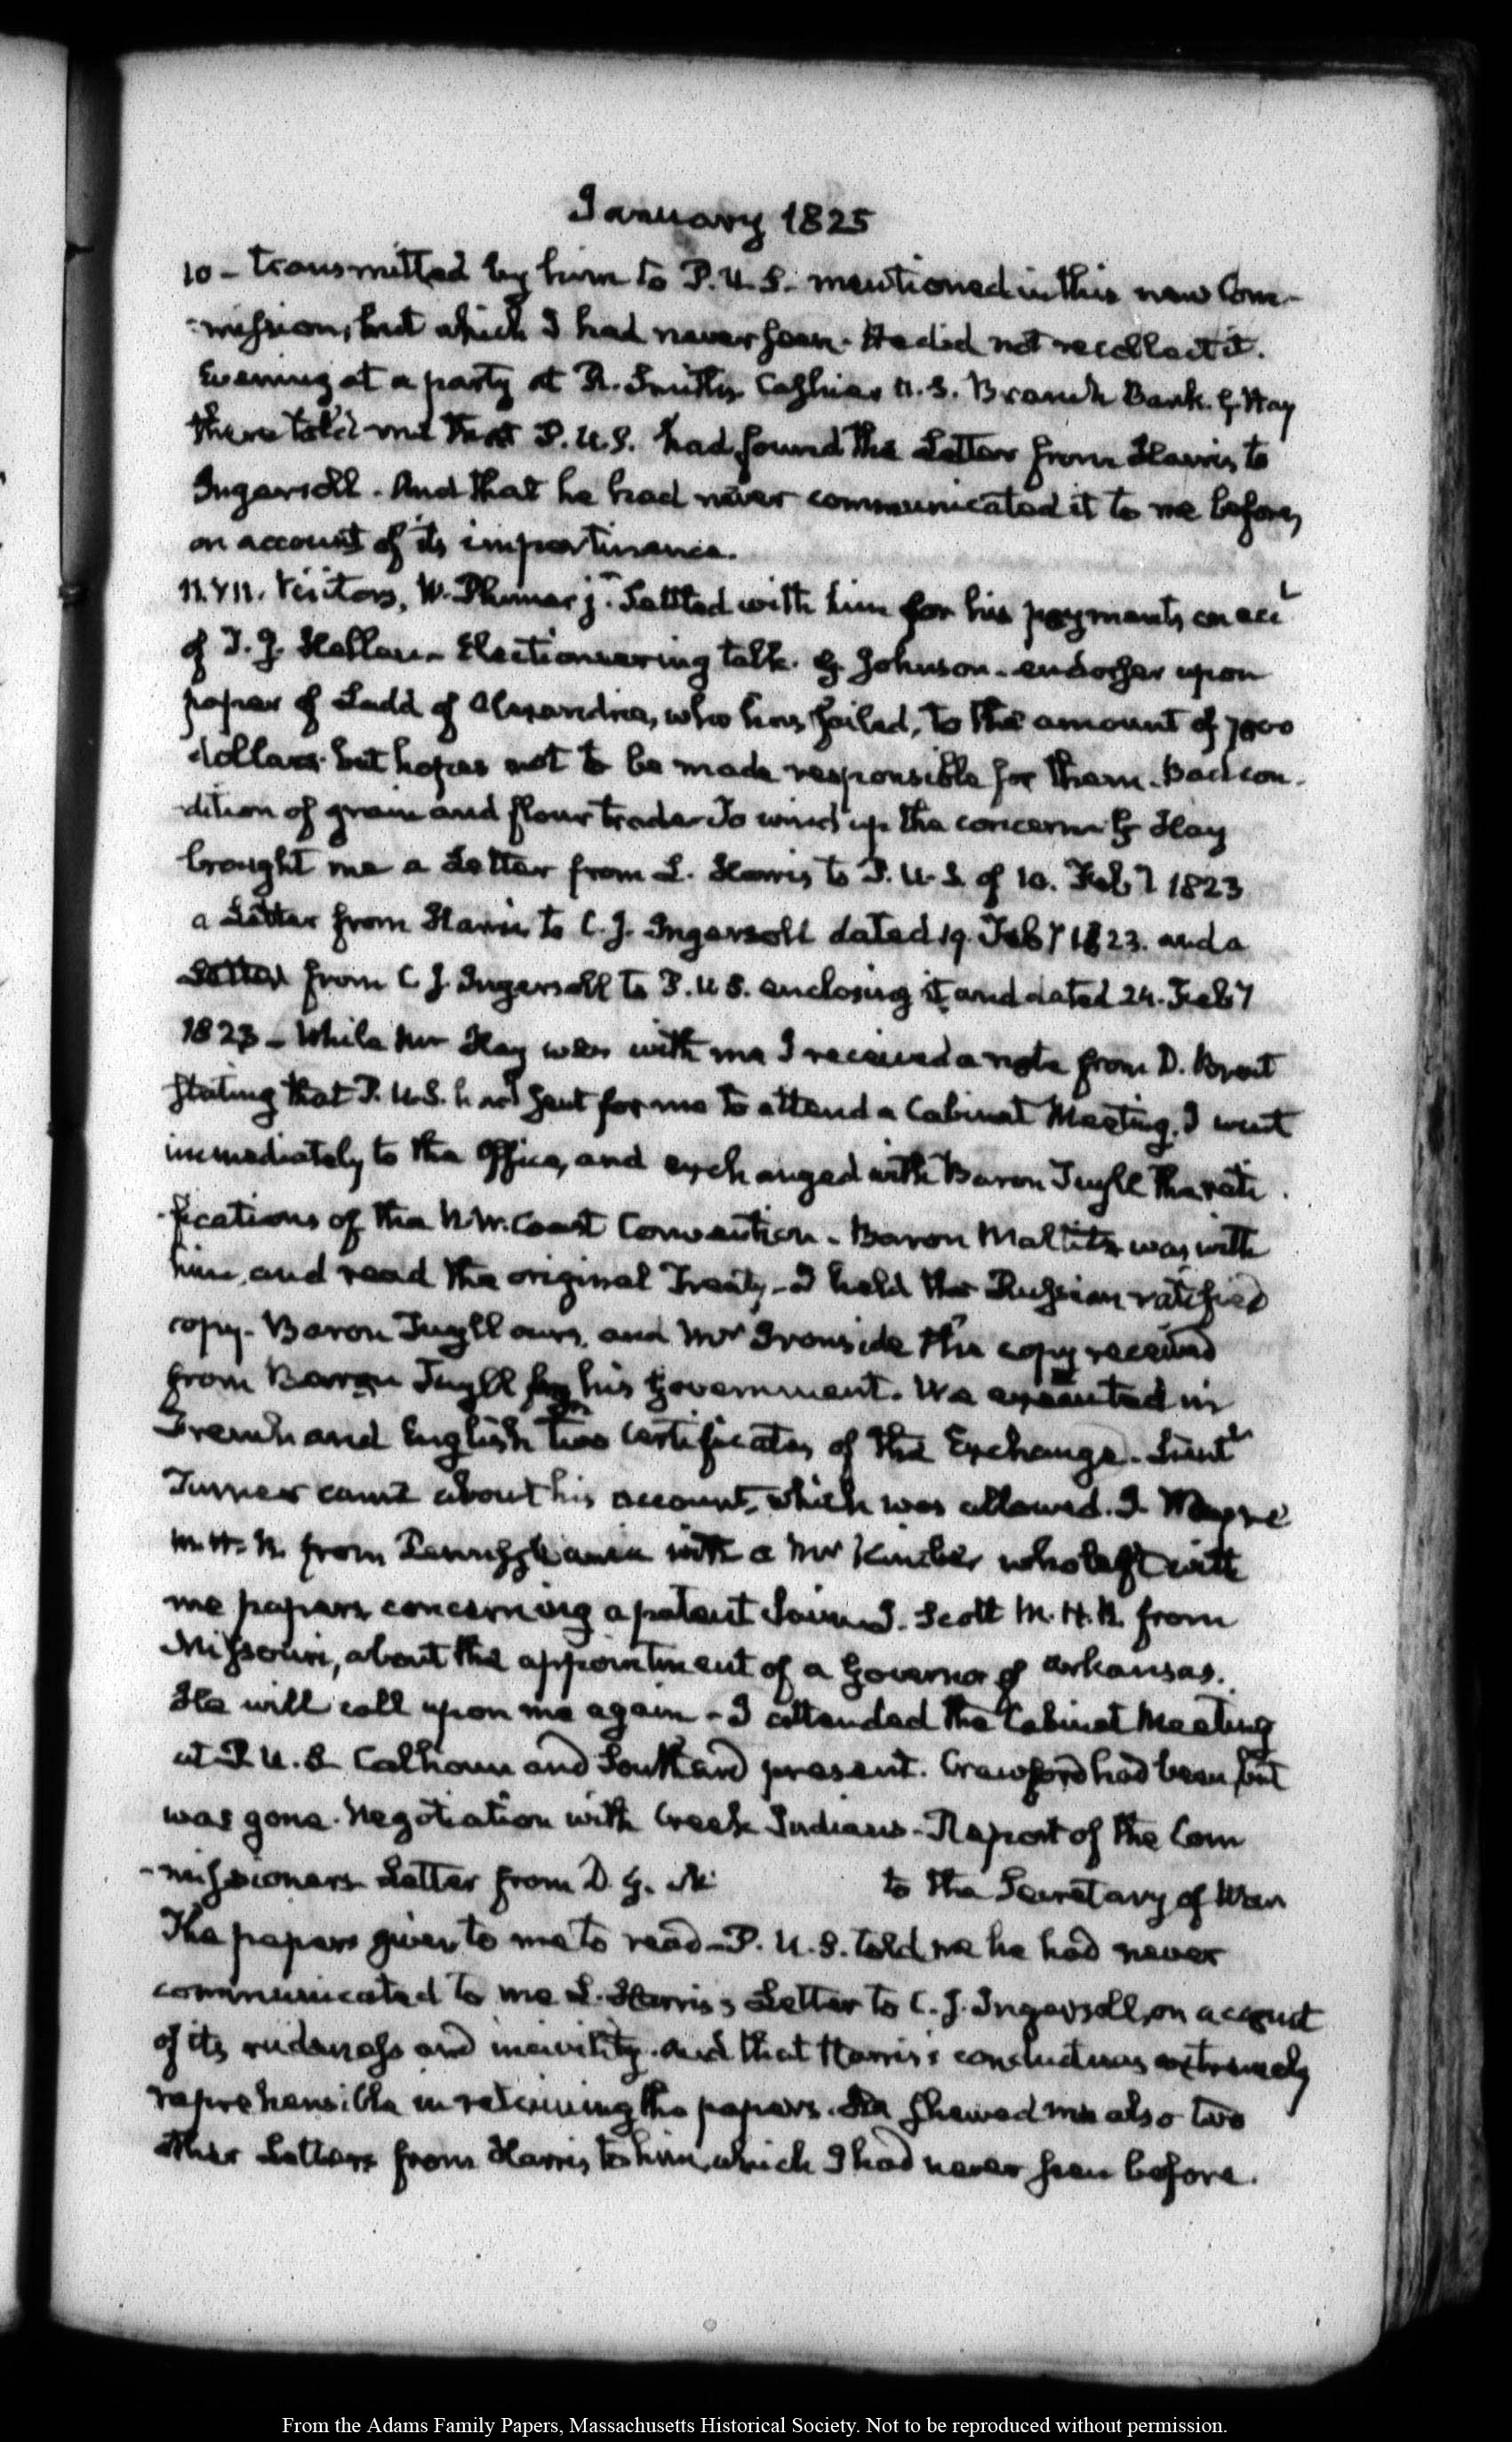 January 1825
10 - transmitted by him to P.U.S. mentioned in this new Com-
-mission, but which I had never seen. He did not recollect it.
Evening at a party at R. Smith's Cashier U.S. Branch Bank. G. Hay
there told me that P.U.S. had found the Letter from Harris to
Ingersoll. And that he had never communicated it to me before,
on account of its impertinence.
Visitors, W. Plumer jr. Settled with him for his payments on acct
of T. J. Hellen. Electioneering talk. G. Johnson. endorser upon
paper of Ladd of Alexandria, who has failed, to the amount of 7800
dollars but hopes not to be made responsible for them. Bad con-
-dition of grain and flour trade. To wind up the concern. G. Hay
brought me a Letter from L. Harris to P.U.S. of 10. Feby 1823
a Letter from Harris to C. J. Ingersoll dated 19. Feby 1823. and a
Letter from C J. Ingersoll to P.U.S. enclosing it and dated 24. Feby
1823 - While Mr Hay was with me I received a note from D. Brent
stating that P.U.S. had sent for me to attend a Cabinet Meeting. I went
immediately to the Office, and exchanged with Baron Tuyll the rati-
-fications of the N.W. Coast Convention. Baron Maltitz was with
him, and read the original Treaty - I held the Russian ratified
copy. Baron Tuyll ours, and Mr Ironside the copy received
from Baron Tuyll his Government. We executed in
French and English two Certificates of the Exchange. Lieutt
Turner came about his account, which was allowed. I.
M.H.R. from Pennsylvania with a Mr Kimber who left with
me papers concerning a patent J. Scott M.H.R. from
Missouri, about the appointment of a Governor of Arkansas.
He will call upon me again - I attended the Cabinet Meeting
at P.U.S. Calhoun and Southard present. Crawford had been, but
was gone. Negotiation with Creek Indians - Report of the Com
-missioners Letter from D. G. M to the Secretary of War
The papers given to me to read - P.U.S. told me he had never
communicated to me L. Harris's Letter to C. J. Ingersoll, on account
of its rudeness and incivility. And that Harris's conduct was extremely
reprehensible in retaining the papers. He shewed me also two
other Letters from Harris to him, which I had never seen before.
From the Adams Family Papers, Massachusetts Historical Society. Not to be reproduced without permission.